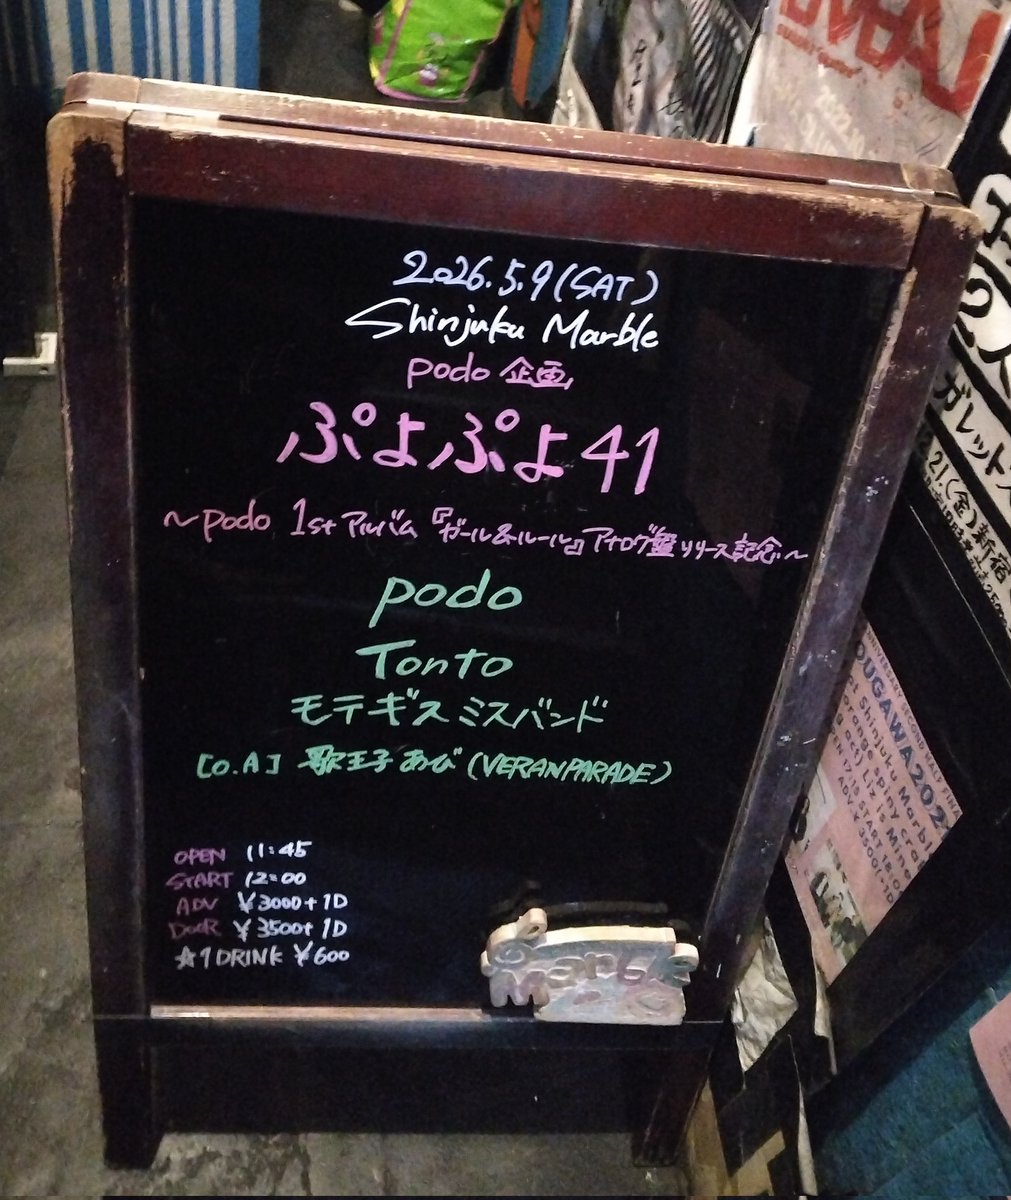 2026.5.9(SAT)
Shinjuku Marble
podo 企画
ぷよぷよ41
～podo 1st アルバム『ガール&ルール』アナログ盤リリース記念～
podo
Tonto
モテギスミスバンド
[O.A] 歌王子あび(VERANPARADE)
OPEN 11:45
START 12:00
ADV ¥3000+1D
DOOR ¥3500+1D
☆1DRINK ¥600
Marble
2人
ガレット
21.(金)新宿
OUGAWA202